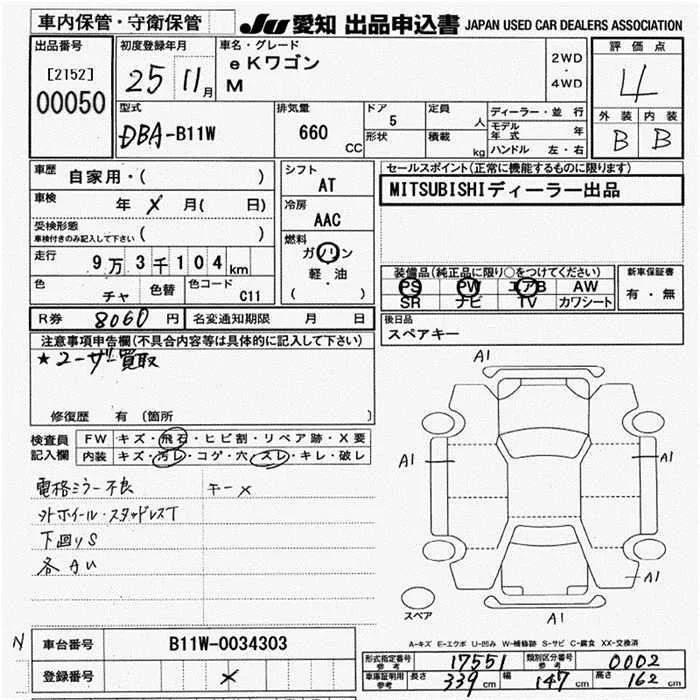 車内保管・守衛保管 JU 愛知 出品申込書 JAPAN USED CAR DEALERS ASSOCIATION
出品番号 [2152] 00050
初度登録年月 25 11月
車名・グレード eKワゴン M
2WD・4WD
評価点 4
外装 B 内装 B
型式 DBA-B11W
排気量 660 CC
ドア 5 形状
定員 人 積載 kg
ディーラー・並行
モデル年式 年
ハンドル 左・右
車歴 自家用・( )
車検 年 X 月( 日)
受検形態 車検付きのみ記入して下さい ( )
走行 9万3千104km
色 チャ 色替 色コード C11
シフト AT
冷房 AAC
燃料 ガソリン 軽・油 ( )
セールスポイント(正常に機能するものに限ります)
MITSUBISHIディーラー出品
装備品(純正品に限り○をつけてください)
PS PW エアB AW
SR ナビ TV カワシート
新車保証書 有・無
R券 8060円 名変通知期限 月 日
後日品
スペアキー
注意事項申告欄(不具合内容等は具体的に記入して下さい)
★ユーザー買取
修復歴 有 (箇所 )
検査員記入欄
FW キズ・飛石・ヒビ割・リペア跡・X要
内装 キズ・汚レ・コゲ・穴・スレ・キレ・破レ
電格ミラー不良 キーX
外ホイール・スタッドレスT
下回りS
各AU
A1
A1
A1
A1
A1
スペア
A-キズ E-エクボ U-凹み W-補修跡 S-サビ C-腐食 XX-交換済
N
車台番号 B11W-0034303
登録番号 X
形式指定番号 参考 17551 類別区分番号 参考 0002
車庫証明用 参考 長さ 339cm 幅 147cm 高さ 162cm